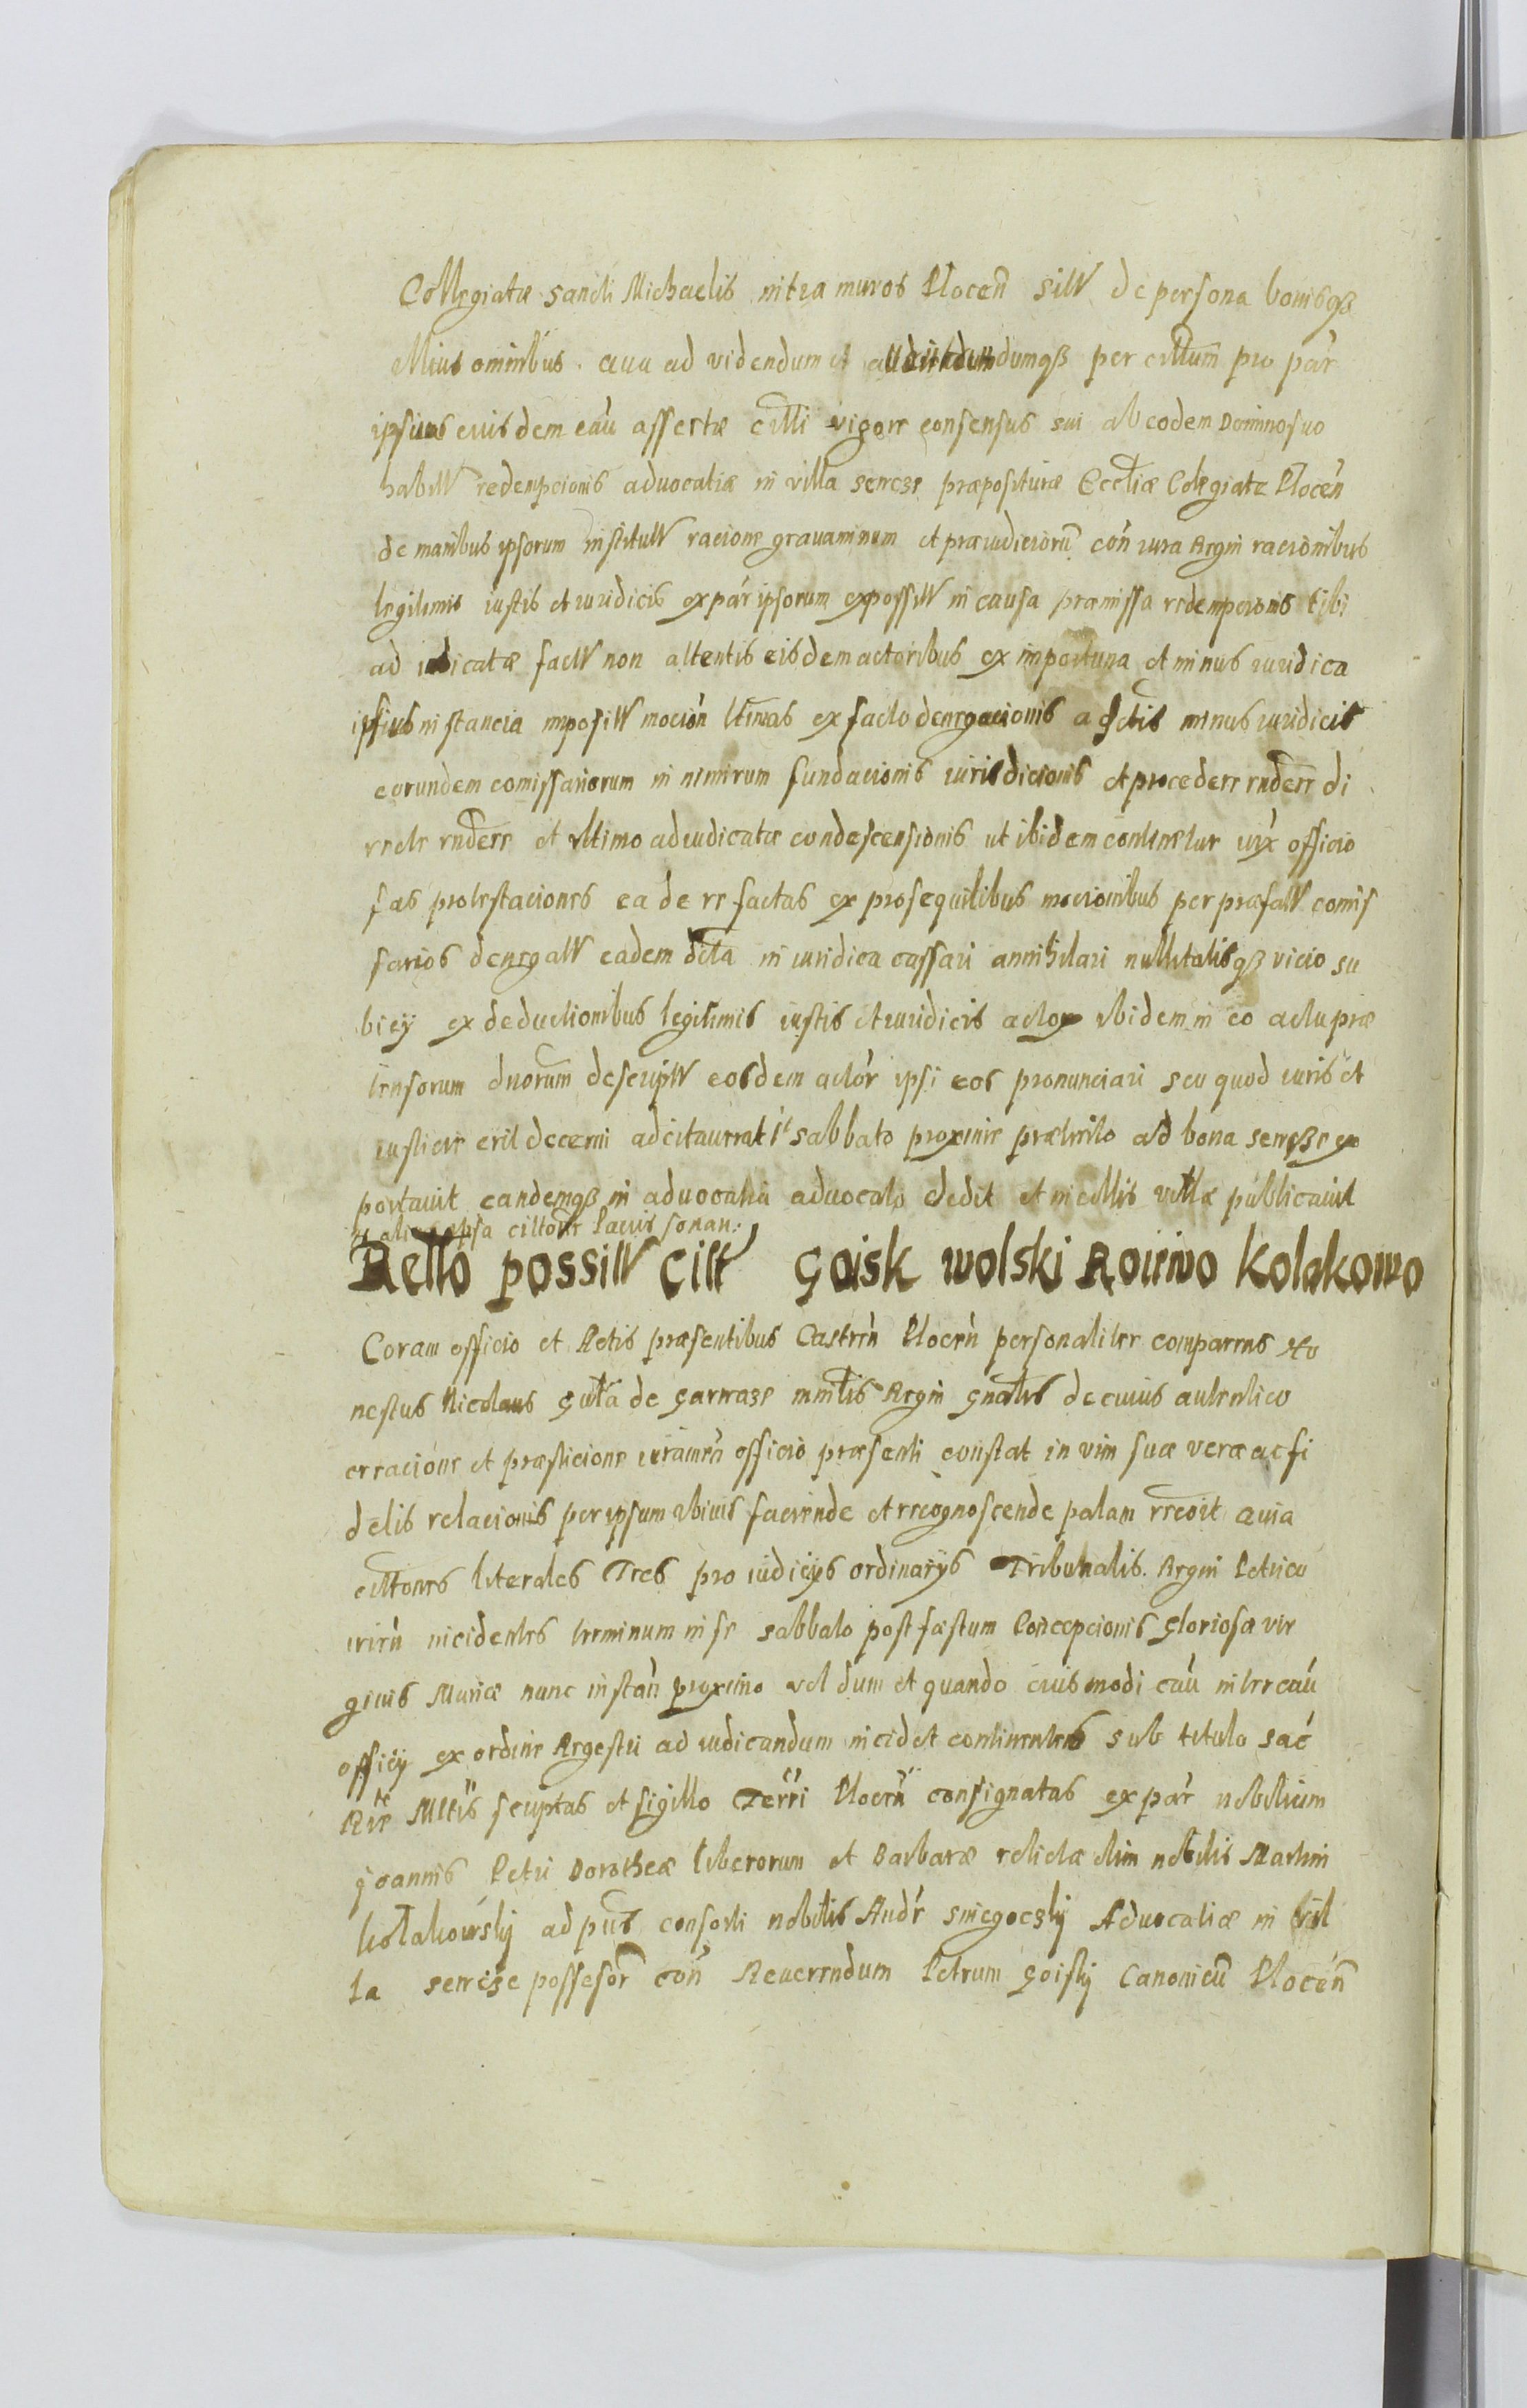 Collegiatæ sancti Michaelis intra muros Plocen̄ sitt̄ de persona bonisqꝫ
illius omnibus avu ad videndum et dumqꝫ per cittum pro par
ipsius eiusdem cau assertæ citti vigore consensus sui ab eodem Domino suo
habitt redempcionis aduocatiæ in villa sencze præpositurae Eccliæ Colegiatæ Plocen̄
de manibus ipsorum institutt racione grauaminum et præiudiciorū con iura Regni racionibus
legitimis iustis et iuridicis ex par ipsorum expositt in causa præmissa redempcionis tibi
ad iudicatæ factt non attentis eisdem actoribus ex importuna et minus iuridica
ipsius instancia impositt mocion ltimas ex facto denegacionis a minus iuridicis
eorundem comissariorum in nimirum fundacionis iurisdicionis et procedere rndere di
recte rndere et vltimo adiudicatæ condescensionis ut ibidem continetur officio
sas protestaciones ea de re factas ex prosequitibus mocionibus per præfatt comis
sarios denegatt eadem dicta in iuridica cassari annihilari nullitatisqꝫ vicio su
bicy ex deductionibus legitimis iustis et iuridicis actor ibidem in eo actu præ
tensorum duorum descriptt eosdem actor ipsi eos pronunciari seu quod iuris et
iusticie erit decerni adcitauerat sabbato proxime præterito ad bona sencze ex
portauit eandemqꝫ in aduocatia aduocato dedit et in cittis villæ publicauit
ipsa cittone lacius sonan:
Retto possitt citt Goisk wolski Roirivo Kolakowo
Coram officio et Actis præsentibus Castren Plocen personaliter comparens Ho
nestus Nicolaus guta de garwaze mintis Regni gnatis de cuius autentico
creacione et præsticione iuramen officio præsenti constat in vim suæ veræ ac fi
delis relacionis per ipsum ibiuis faciende et recognoscende palam recoit quia
cittones literales Tres pro iudicijs ordinarijs Tribunalis Regni Petrico
uien incidentes terminum in se sabbato post fæstum Concepcionis gloriosæ vir
ginis Mariæ nunc instan proximo vel dum et quando eiusmodi cau inter cau
officij ex ordine Regestri ad iudicandum incidet continentes sub titulo sac
Rie Mttis scriptas et sigillo Terri Plocen consignatas ex par nobilium
Joannis Petri Dorotheæ liberorum et Barbaræ relictæ olim nobilis Martini
kołakowskij ad pns consorti nobilis Andr sniegockij Aduocatiæ in vil
la sencze possesor con Reuerendum Petrum goiskij Canonicū Plocen̄